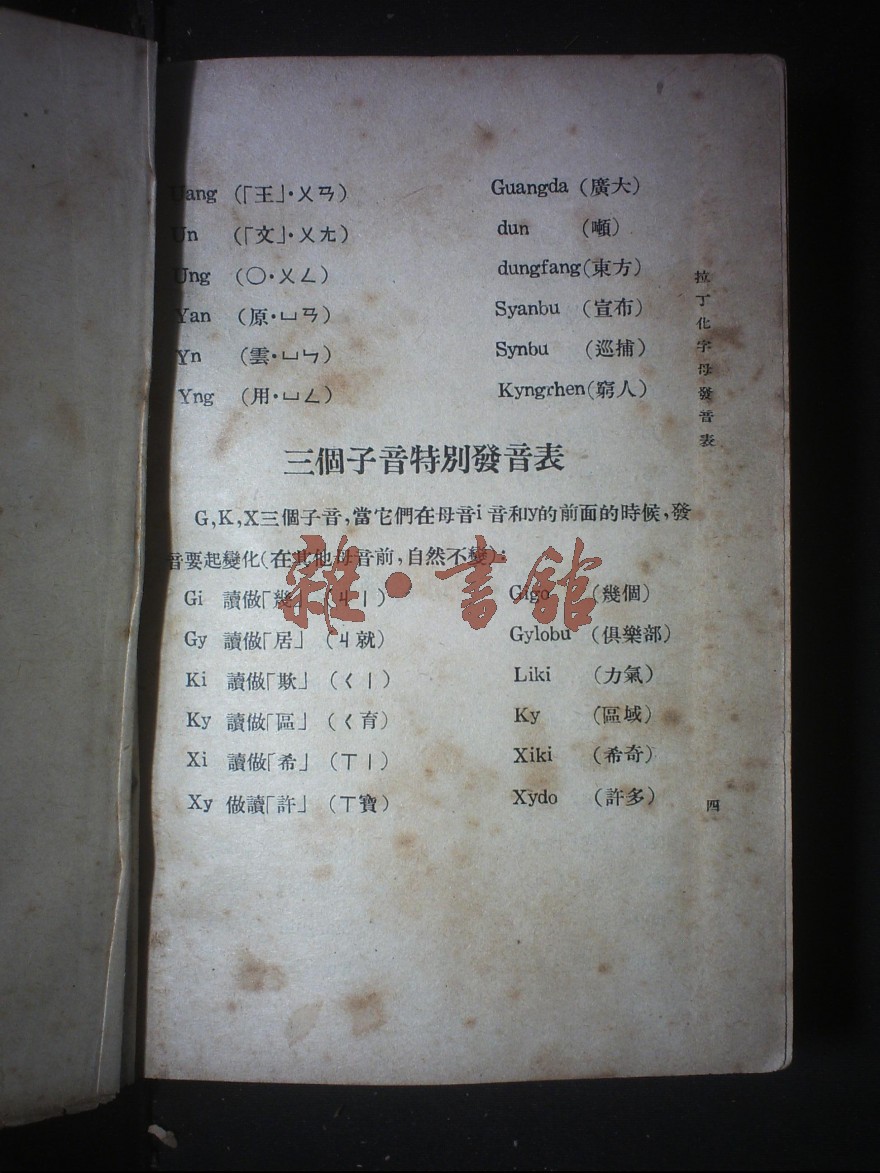 Uang (「王」·ㄨㄢ) Guangda (廣大)
Un (「文」·ㄨㄤ) dun (噸)
Ung (〇·ㄨㄥ) dungfang(東方)
Yan (原·ㄩㄢ) Syanbu (宣布)
Yn (雲·ㄩㄣ) Synbu (巡捕)
Yng (用·ㄩㄥ) Kyngrhen(窮人)
三個子音特別發音表
G,K,X三個子音,當它們在母音i音和y的前面的時候,發
音要起變化(在其他母音前,自然不變):
Gi 讀做「幾」(ㄐㄧ) Gigo (幾個)
Gy 讀做「居」(ㄐ就) Gylobu (俱樂部)
Ki 讀做「欺」(ㄑㄧ) Liki (力氣)
Ky 讀做「區」(ㄑ育) Ky (區域)
Xi 讀做「希」(ㄒㄧ) Xiki (希奇)
Xy 做讀「許」(ㄒ寶) Xydo (許多)
拉丁化字母發音表
四
雜·書館